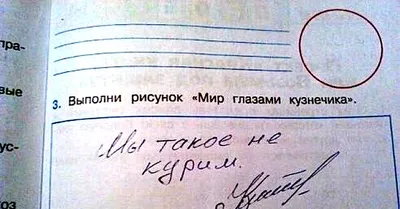 пра-
вые
3. Выполни рисунок «Мир глазами кузнечика».
Мы такое не
курим.
ус-
оз